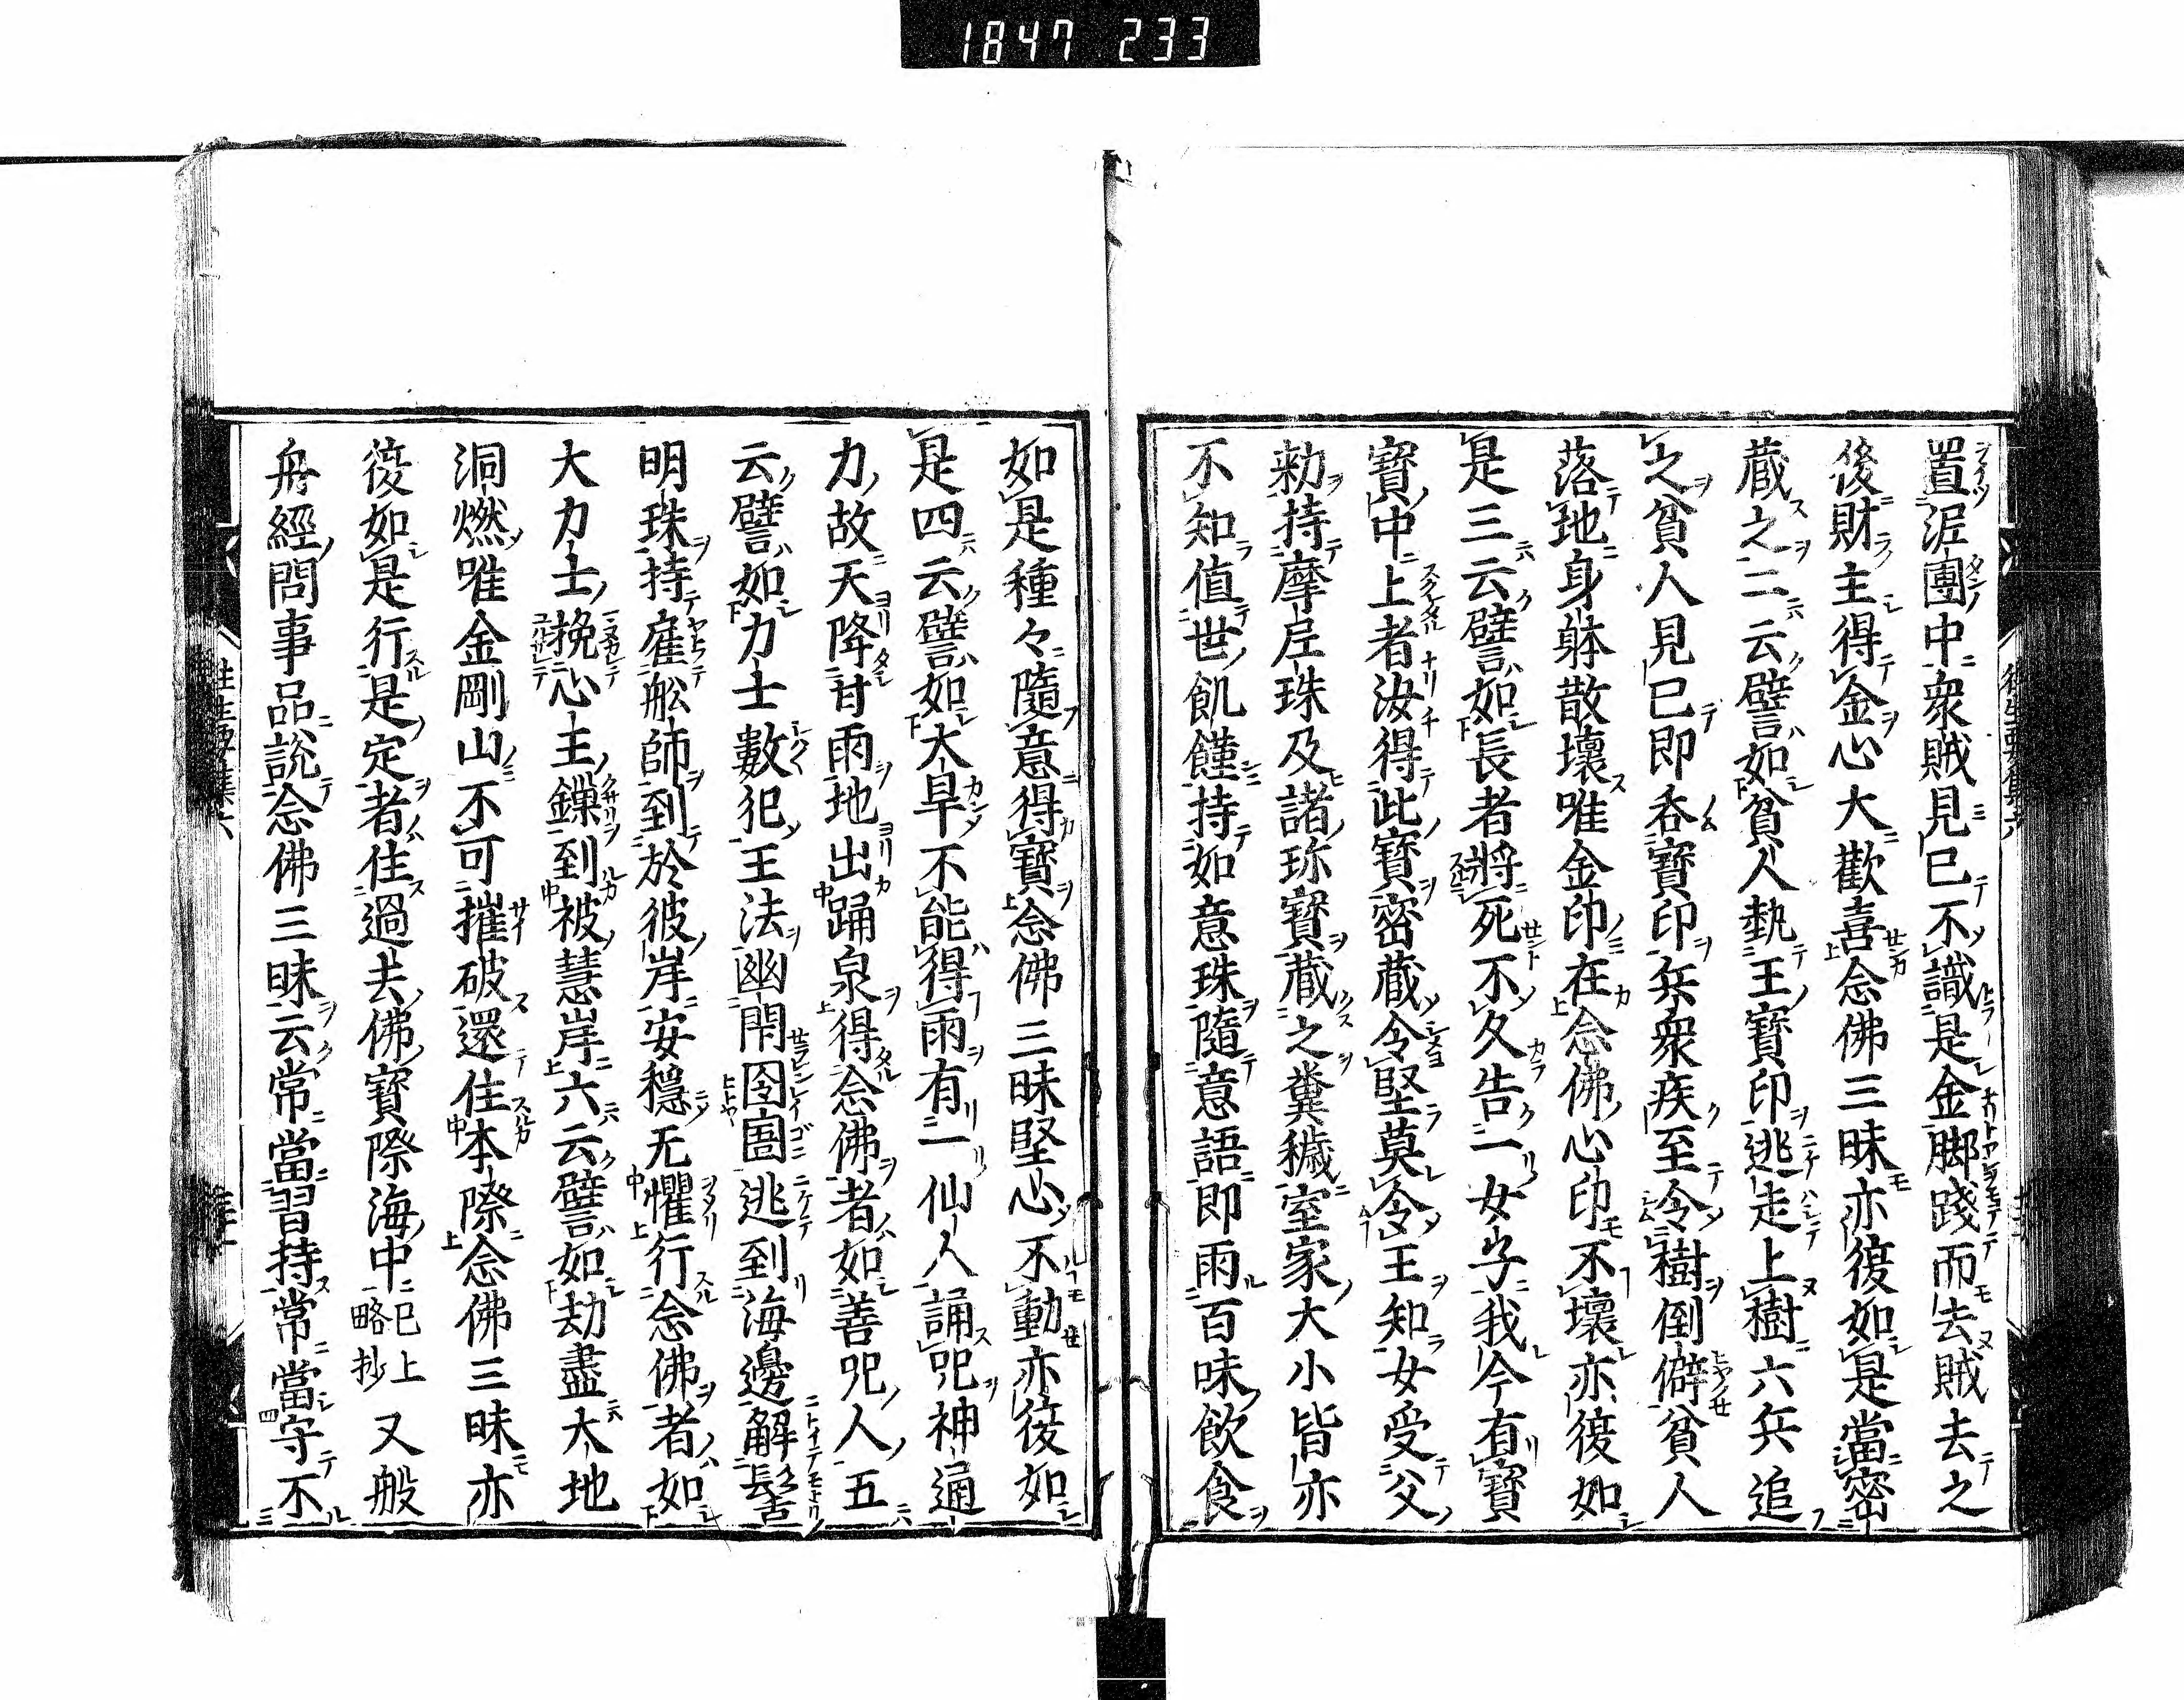 1847 233
置泥團中衆賊見已不識是金脚踐而去賊去之
後財主得金心大歡喜念佛三昧亦復如是當密
藏之二云譬如貧人執王寶印逃走上樹六兵追
之貧人見已即呑寶印兵衆疾至令樹倒僻貧人
落地身躰散壞唯金印在念佛心印不壞亦復如
是三云譬如長者將死不久告一女子我今有寶
寶中上者汝得此寶密藏令堅莫令王知女受父
勅持摩尼珠及諸珎寶藏之糞穢室家大小皆亦
不知值世飢饉持如意珠隨意語即雨百味飲食
如是種々隨意得寶念佛三昧堅心不動亦復如
是四云譬如大旱不能得雨有一仙人誦呪神通
力故天降甘雨地出踊泉得念佛者如善呪人五
云譬如力士數犯王法幽閇囹圄逃到海邊解髻
明珠持雇舩師到於彼岸安穏无懼行念佛者如
大力士挽心王鏁到彼慧岸六云譬如劫盡大地
洞燃唯金剛山不可摧破還住本際念佛三昧亦
復如是行是定者住過去佛寶際海中已上略抄又般
舟經問事品説念佛三昧云常當習持常當守不